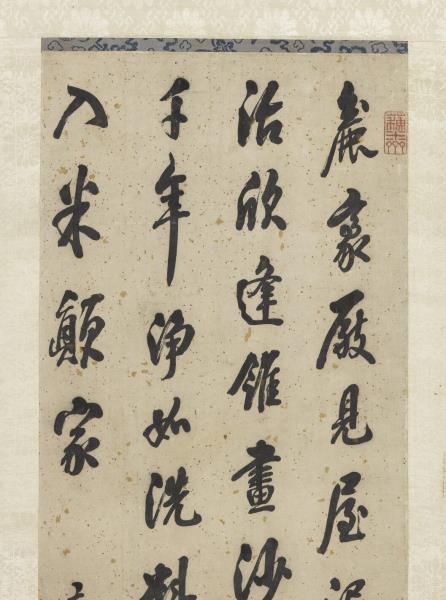 豪厭見屋
欣逢錐畫沙
千年淨如洗
入米顛家